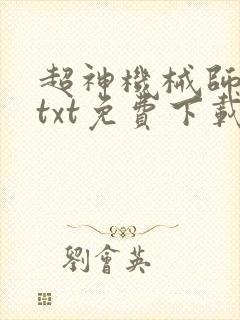 超神機械師
txt免費下載
劉會英